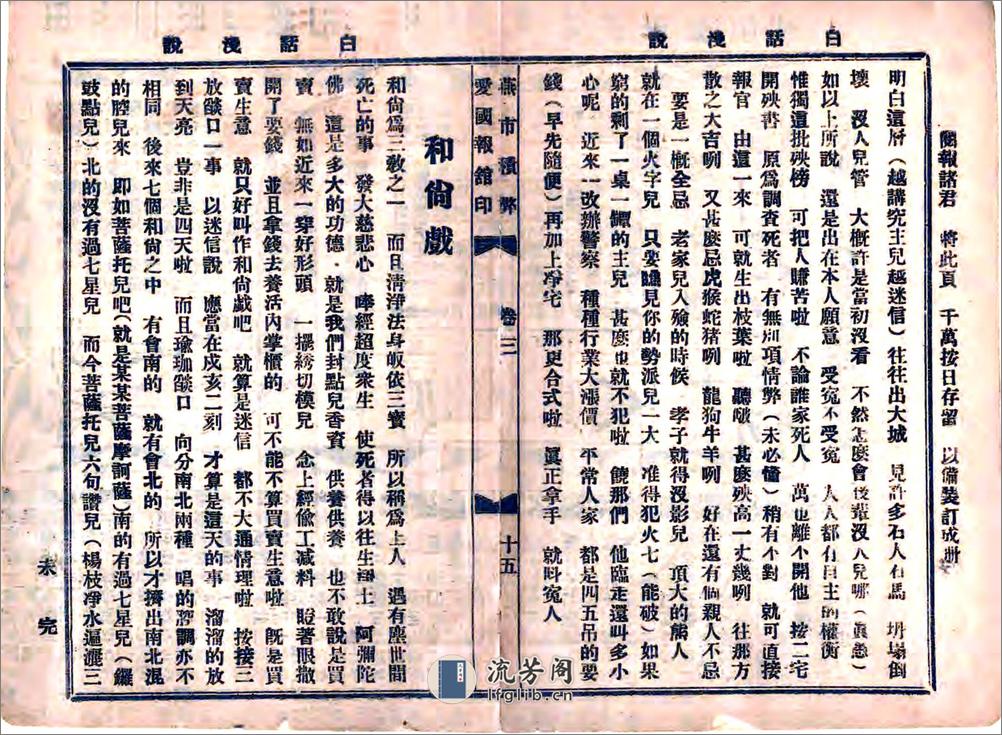 白話淺說
閱報諸君　將此頁　千萬按日存留　以備裝訂成冊
明白這層（越講究主兒越迷信）往往出大城　見許多石人石馬　坍塌倒
壞　沒人兒管　大概許是當初沒看　不然怎麼會後輩沒人兒哪（眞愚）
如以上所說　還是出在本人願意　受寃不受寃　人人都有自主的權衡
惟獨這批殃榜　可把人賺苦啦　不論誰家死人　萬也離不開他　按二宅
開殃書　原爲調查死者　有無別項情弊（未必懂）稍有不對　就可直接
報官　由這一來　可就生出枝葉啦　聽啵　甚麼殃高一丈幾咧　往那方
散之大吉咧　又甚麼忌虎猴蛇猪咧　龍狗牛羊咧　好在還有個親人不忌
要是一概全忌　老家兒入殮的時候　孝子就得沒影兒　頂大的熊人
就在一個火字兒　只要瞧見你的勢派兒一大　准得犯火七（能破）如果
窮的剩了一桌一櫈的主兒　甚麼也就不犯啦　饒那們　他臨走還叫多小
心呢　近來一改辦警察　種種行業大漲價　平常人家　都是四五吊的要
錢（早先隨便）再加上凈宅　那更合式啦　眞正拿手　就叫寃人
燕市積弊　卷三　十五
愛國報館印
白話淺說
和尙戲
和尙爲三敎之一　而且清淨法身皈依三寶　所以稱爲上人　遇有塵世間
死亡的事　發大慈悲心　唪經超度衆生　使死者得以往生凈土　阿彌陀
佛　這是多大的功德．就是我們封點兒香資　供養供養　也不敢說是買
賣　無如近來一穿好形頭　一擺綉切模兒　念上經偷工减料　瞪著眼撒
開了要錢　並且拿錢去養活內掌櫃的　可不能不算買賣生意啦　旣是買
賣生意　就只好叫作和尙戲吧　就算是迷信　都不大通情理啦　按接三
放燄口一事　以迷信說　應當在戌亥二刻　才算是這天的事　溜溜的放
到天亮　豈非是四天啦　而且瑜珈燄口　向分南北兩種　唱的腔調亦不
相同　後來七個和尙之中　有會南的　就有會北的　所以才擠出南北混
的腔兒來　即如菩薩托兒吧（就是某某菩薩摩訶薩）南的有過七星兒（鑼
鼓點兒）北的沒有過七星兒　而今菩薩托兒六句讚兒（楊枝凈水遍灑三
未完
流芳阁
lfglib.cn